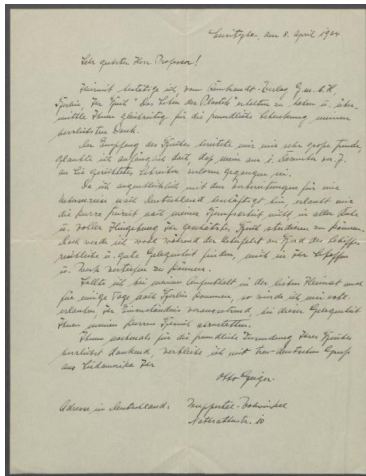 den 8. April 1924
Sehr geehrter Herr Professor!
Hiermit bestätige ich, vom Verlag G.m.b.H.
Berlin, Ihr Buch "Das Leben der" erhalten zu haben u. über-
mittle Ihnen gleichzeitig für die freundliche meinen
herzlichsten Dank.
Der Empfang des Buches bereitete mir eine sehr große Freude,
glaubte ich anfänglich doch, dass mein am 7. Dezember v. J.
an Sie gerichtetes Schreiben verloren gegangen sei.
Da ich augenblicklich mit den Vorbereitungen für eine
nach Deutschland beschäftigt bin, erlaubt mir
die kurze Freizeit nach meiner nicht, in aller Ruhe
u. voller Hingebung Ihr Buch studieren zu können.
Doch werde ich wohl während der an Bord des Schiffes
reichliche u. gute Gelegenheit finden, mich in
u. vertiefen zu können.
Sollte ich bei meinem Aufenthalt in der lieben Heimat auch
für einige Tage nach Berlin kommen, so würde ich mir
erlauben, Ihr Einverständnis voraussetzend, bei dieser Gelegenheit
Ihnen einen kurzen Besuch abzustatten.
Ihnen nochmals für die freundliche Zusendung Ihres Buches
herzlichst dankend, verbleibe ich mit treu-deutschem Gruss
aus Südamerika Ihr
Otto Geiger.
Adresse in Deutschland: Wuppertal-Vohwinkel